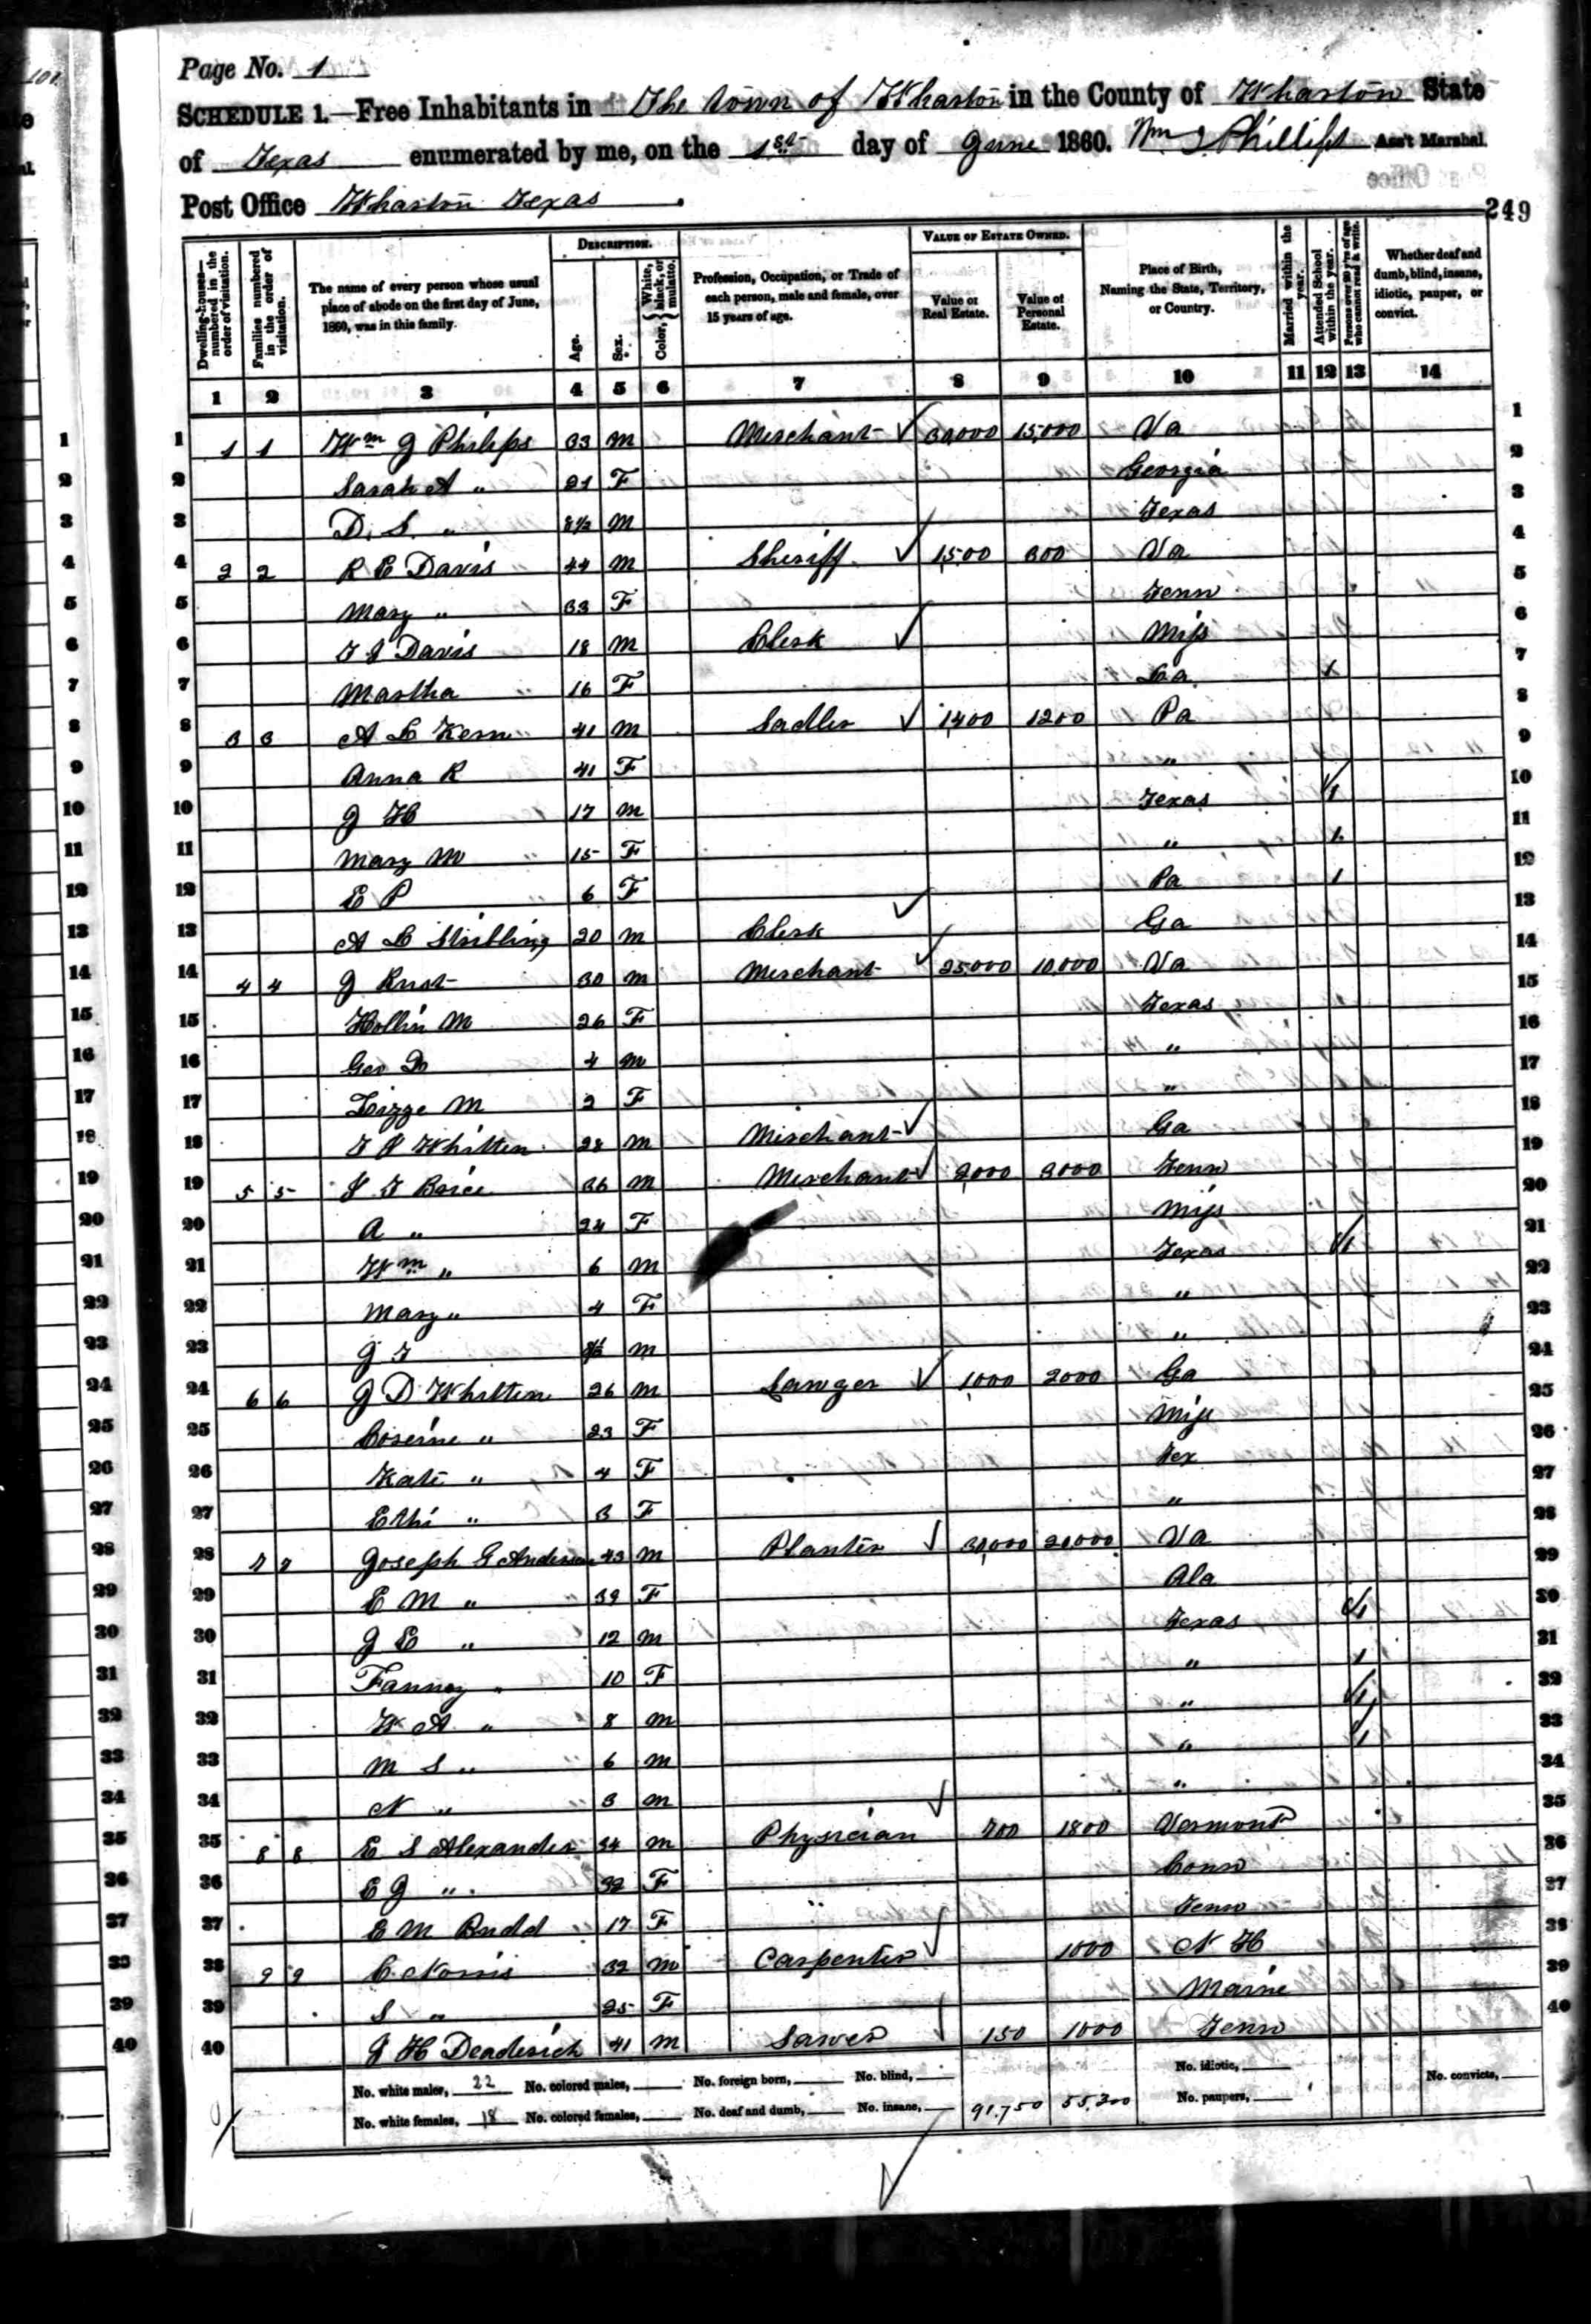 Page No. 1
SCHEDULE 1.—Free Inhabitants in The town of Wharton in the County of Wharton State
of Texas enumerated by me, on the 1st day of June 1860. Wm J Phillips Ass't Marshal.
Post Office Wharton Texas.
249
DESCRIPTION. VALUE OF ESTATE OWNED.
Dwelling-houses—numbered in the order of visitation. Families numbered in the order of visitation. The name of every person whose usual place of abode on the first day of June, 1860, was in this family. Age. Sex. Color, { White, black, or mulatto. Profession, Occupation, or Trade of each person, male and female, over 15 years of age. Value of Real Estate. Value of Personal Estate. Place of Birth, Naming the State, Territory, or Country. Married within the year. Attended School within the year. Persons over 20 y'rs of age who cannot read & write. Whether deaf and dumb, blind, insane, idiotic, pauper, or convict.
1 2 3 4 5 6 7 8 9 10 11 12 13 14
1 1 1 Wm J Philips 33 M Merchant 30,000 15,000 Va 1
2 Sarah A " 21 F Georgia 2
3 D. S. " 8/12 M Texas 3
4 2 2 R E Davis 44 M Sheriff 1,500 300 Va 4
5 Mary " 33 F Tenn 5
6 T J Davis 18 M Clerk Miss 6
7 Martha " 16 F La 1 7
8 3 3 A L Kern 41 M Sadler 1,400 1200 Pa 8
9 Anna R 41 F " 9
10 J H 17 M Texas 1 10
11 Mary M " 15 F " 1 11
12 E P " 6 F Pa 1 12
13 A L Stribling 20 M Clerk Ga 13
14 4 4 J Rust 30 M Merchant 25,000 10,000 Va 14
15 Hollin M 26 F Texas 15
16 Geo 4 M " 16
17 Lizze M 2 F " 17
18 T J Whitten 28 M Merchant Ga 18
19 5 5 J T Brice 36 M Merchant 2,000 3000 Tenn 19
20 A " 24 F Miss 20
21 Wm " 6 M Texas 1 21
22 Mary " 4 F " 22
23 J T M " 23
24 6 6 J D Whitten 26 M Lawyer 1,000 2000 Ga 24
25 " 23 F Miss 25
26 Kate " 4 F Tex 26
27 " 3 F " 27
28 7 7 Joseph G Anderson 43 M Planter 30,000 20,000 Va 28
29 E M " 39 F Ala 29
30 J E " 12 M Texas 1 30
31 Fanney " 10 F " 1 31
32 W A " 8 M " 1 32
33 M S " 6 M " 1 33
34 N " 3 M " 34
35 8 8 E S Alexander 34 M Physician 700 1800 Vermont 35
36 E J " 32 F Conn 36
37 E M Budd " 17 F Tenn 37
38 9 9 C Norris 32 M Carpenter 1000 N H 38
39 S " 25 F Maine 39
40 J H Deaderick 41 M 150 1000 Tenn 40
No. white males, 22 No. colored males, No. foreign born, No. blind, No. idiotic, No. convicts,
No. white females, 18 No. colored females, No. deaf and dumb, No. insane, 91,750 55,300 No. paupers,